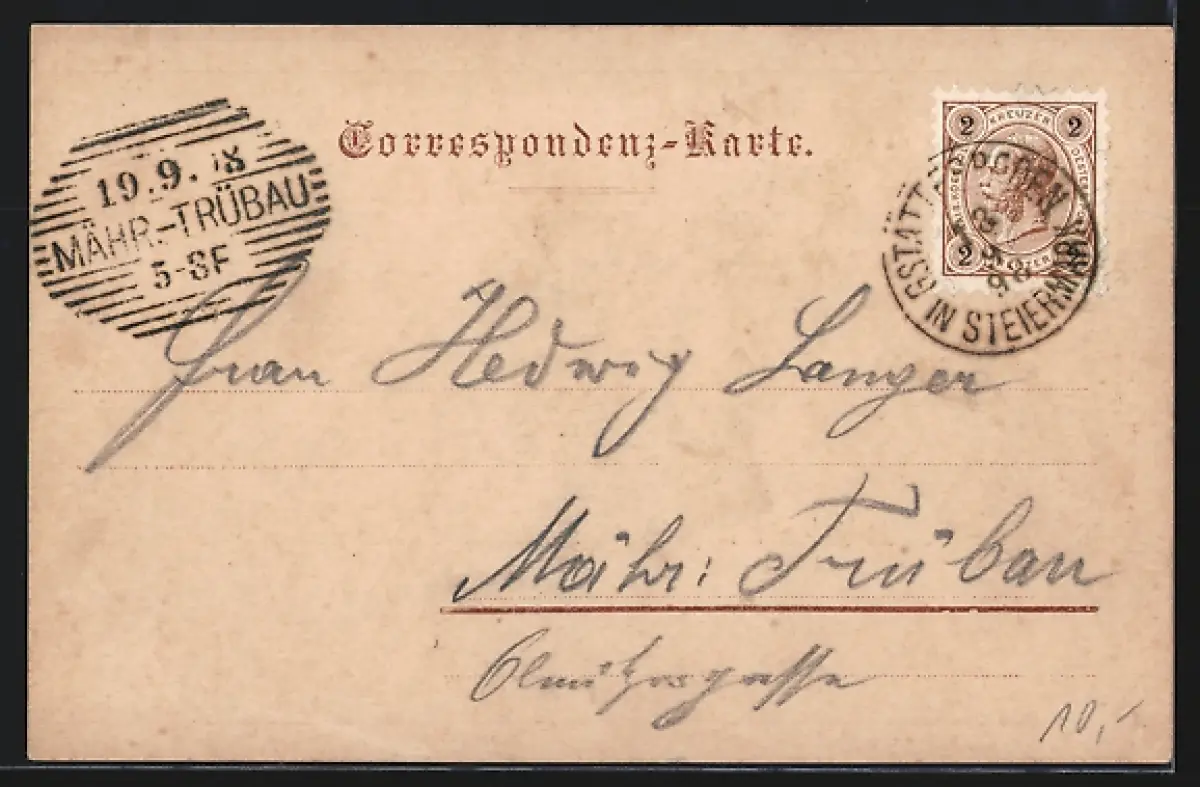 Correspondenz-Karte.
19.9. 98
MÄHR.-TRÜBAU
5-8F
2 KREUZER 2
2 KREUZER 2
GSTÄTTERBODEN
98
IN STEIERMARK
Frau Hedwig Langer
Mähr: Trübau
Olmützergasse
10,-